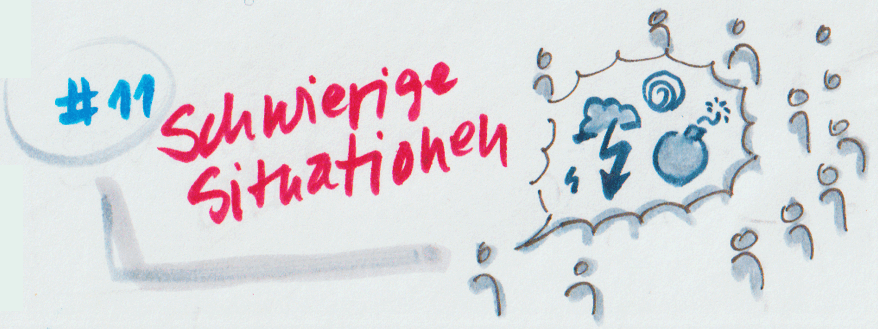 #11
Schwierige
Situationen